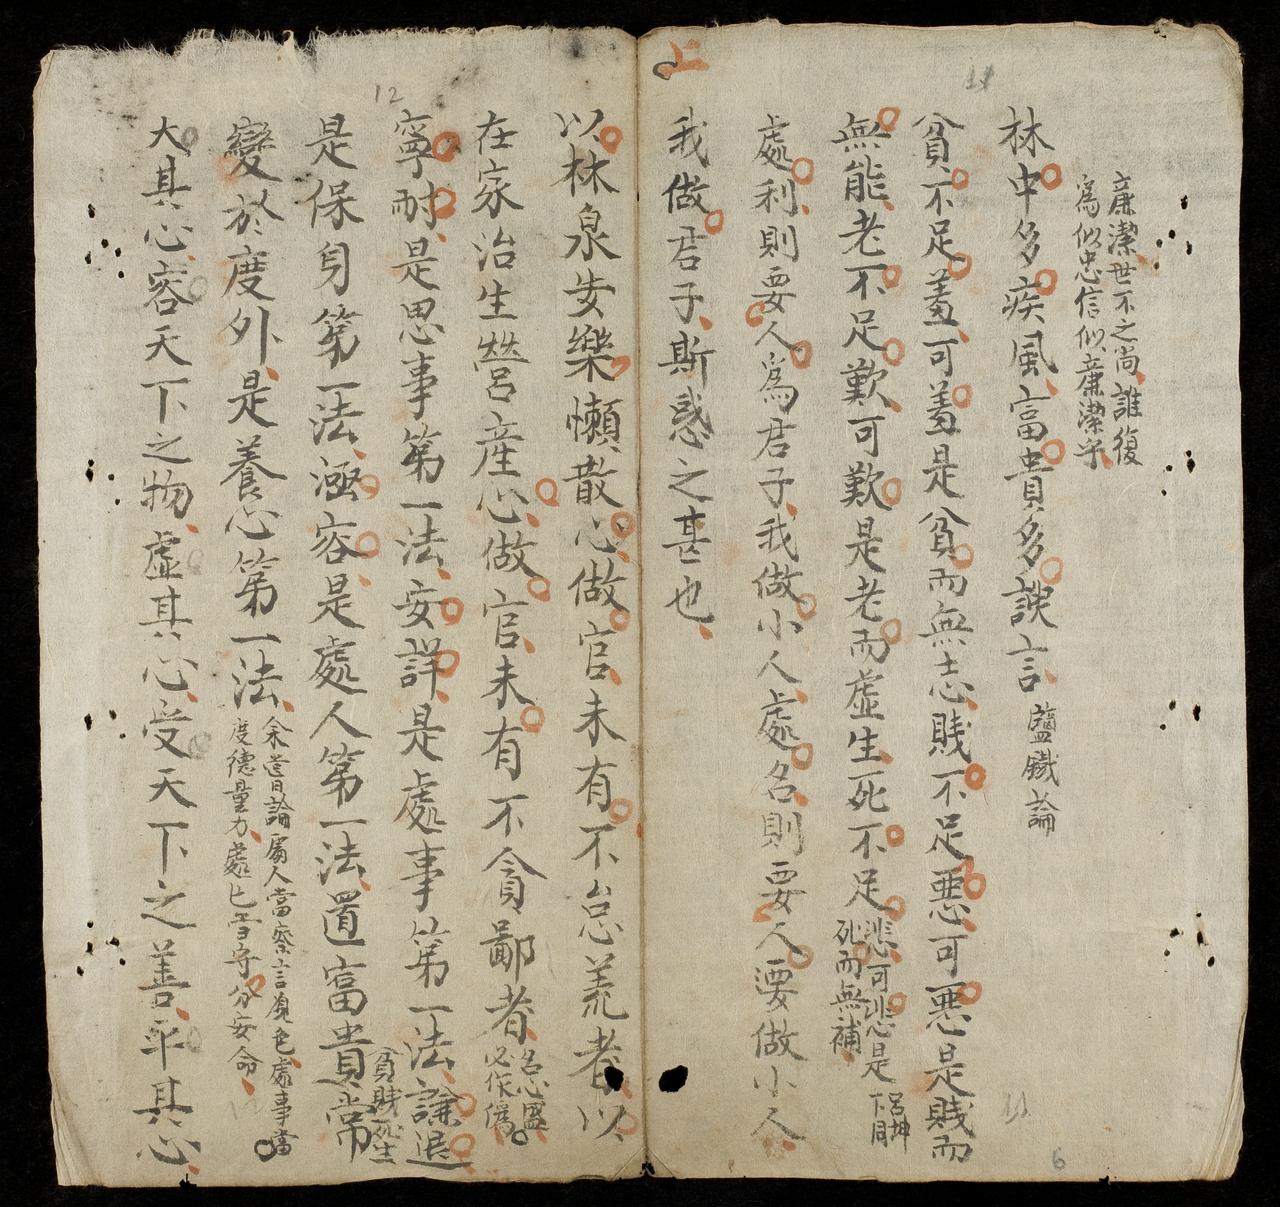 廉潔世不之尚誰復
爲似忠信似廉潔乎
林中多疾風富貴多諛言
鹽鐵論
貧不足羞可羞是貧而無志賤不足惡可惡是賤而
無能老不足歎可歎是老而虛生死不足
悲可悲是
死而無補
呂坤
下同
處利則要人爲君子我做小人處名則要人要做小人
我做君子斯惑之甚也
上
以林泉安樂懶散心做官未有不怠荒者以
在家治生營産心做官未有不貪鄙者
名心盛
必作僞
寧耐是思事第一法安詳是處事第一法謙退
是保身第一法涵容是處人第一法置富貴常
貧賤死生
變於度外是養心第一法
余嘗曰論人當察言觀色處事當
度德量力處亡當守分安命
大其心容天下之物虛其心受天下之善平其心
12
11
11
6